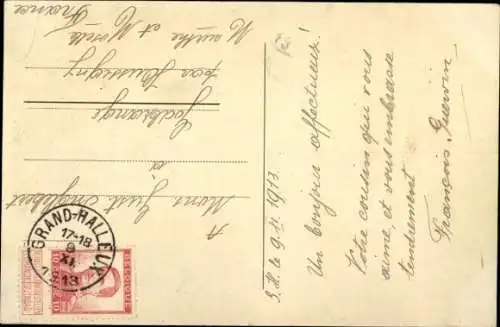 A
Mons Just Englebert
à
Godbrange
par Hussigny
Meurthe et Moselle
France
G. H. le 9.11.1913.
Un bonjour affectueux!
Votre cousin qui vous
aime, et vous embrasse
tendrement
François, Guérin
GRAND-HALLEUX
17-18
9
XI
1913
BELGIQUE